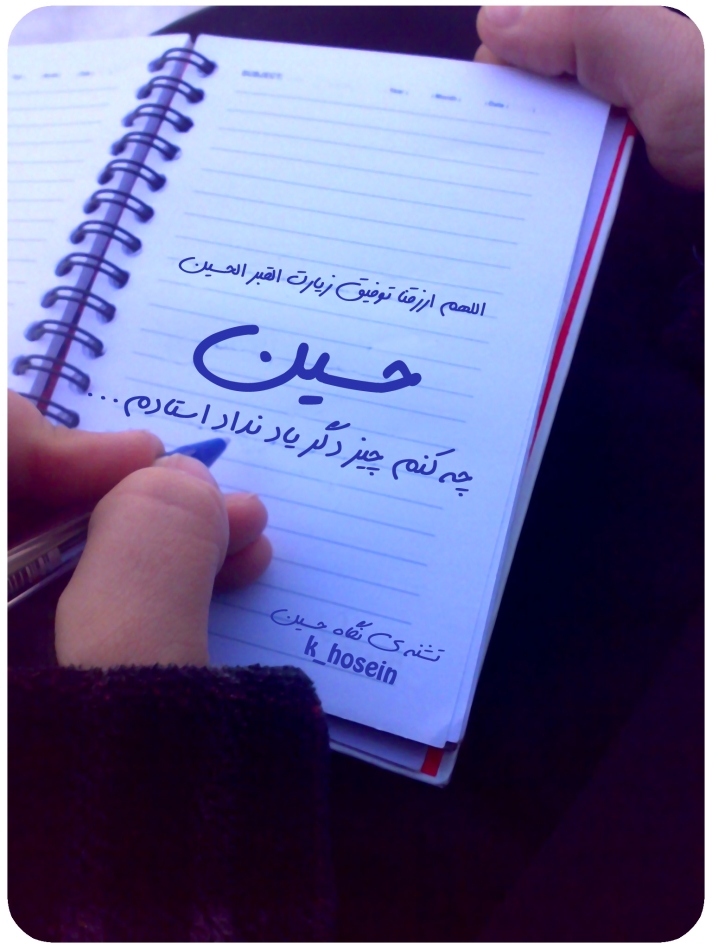 SUBJECT:
اللهم ارزقنا توفیق زیارت القبر الحسین
حسین
چه کنم چیز دگر یاد نداد استادم ...
تشنه ی نگاه حسین
k_hosein